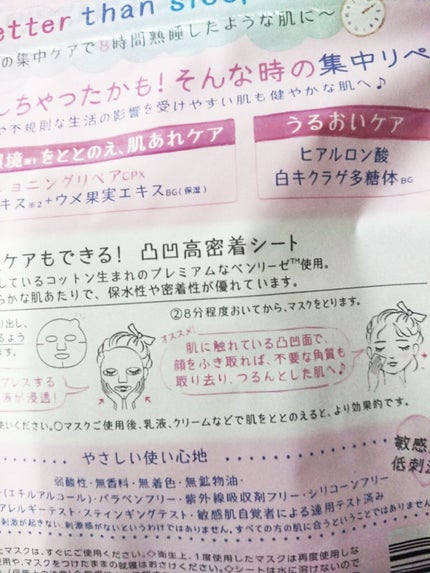 etter than sleep
の集中ケアで8時間熟睡したような肌に〜
しちゃったかも!そんな時の集中リペ
や不規則な生活の影響を受けやすい肌も健やかな肌へ♪
環境※1をととのえ、肌あれケア
ショニングリペアCPX
キス※2+ウメ果実エキスBG(保湿)
うるおいケア
ヒアルロン酸
白キクラゲ多糖体BG
ケアもできる! 凸凹高密着シート
しているコットン生まれのプレミアムなベンリーゼ™使用。
らかな肌あたりで、保水性や密着性が優れています。
り出し、
るよう
ます。
プレスする
液が浸透!
②8分程度おいてから、マスクをとります。
オススメ!
肌に触れている凸凹面で、
顔をふき取れば、不要な角質も
取り去り、つるんとした肌へ♪
使いください。○マスクご使用後、乳液、クリームなどで肌をととのえると、より効果的です。
やさしい使い心地
弱酸性・無香料・無着色・無鉱物油・
(エチルアルコール)・パラベンフリー・紫外線吸収剤フリー・シリコーンフリー
アレルギーテスト・スティンギングテスト・敏感肌自覚者による連用テスト済み
刺激が起きない、刺激感がないというわけではありません。すべての方の肌に合うということではありません。
敏感肌
低刺激
たマスクは、すぐにご使用ください。◇衛生上、1度使用したマスクは再度使用しな
使用や、マスクをつけたままでの就寝はおさけください。◇シートは水に溶けないので